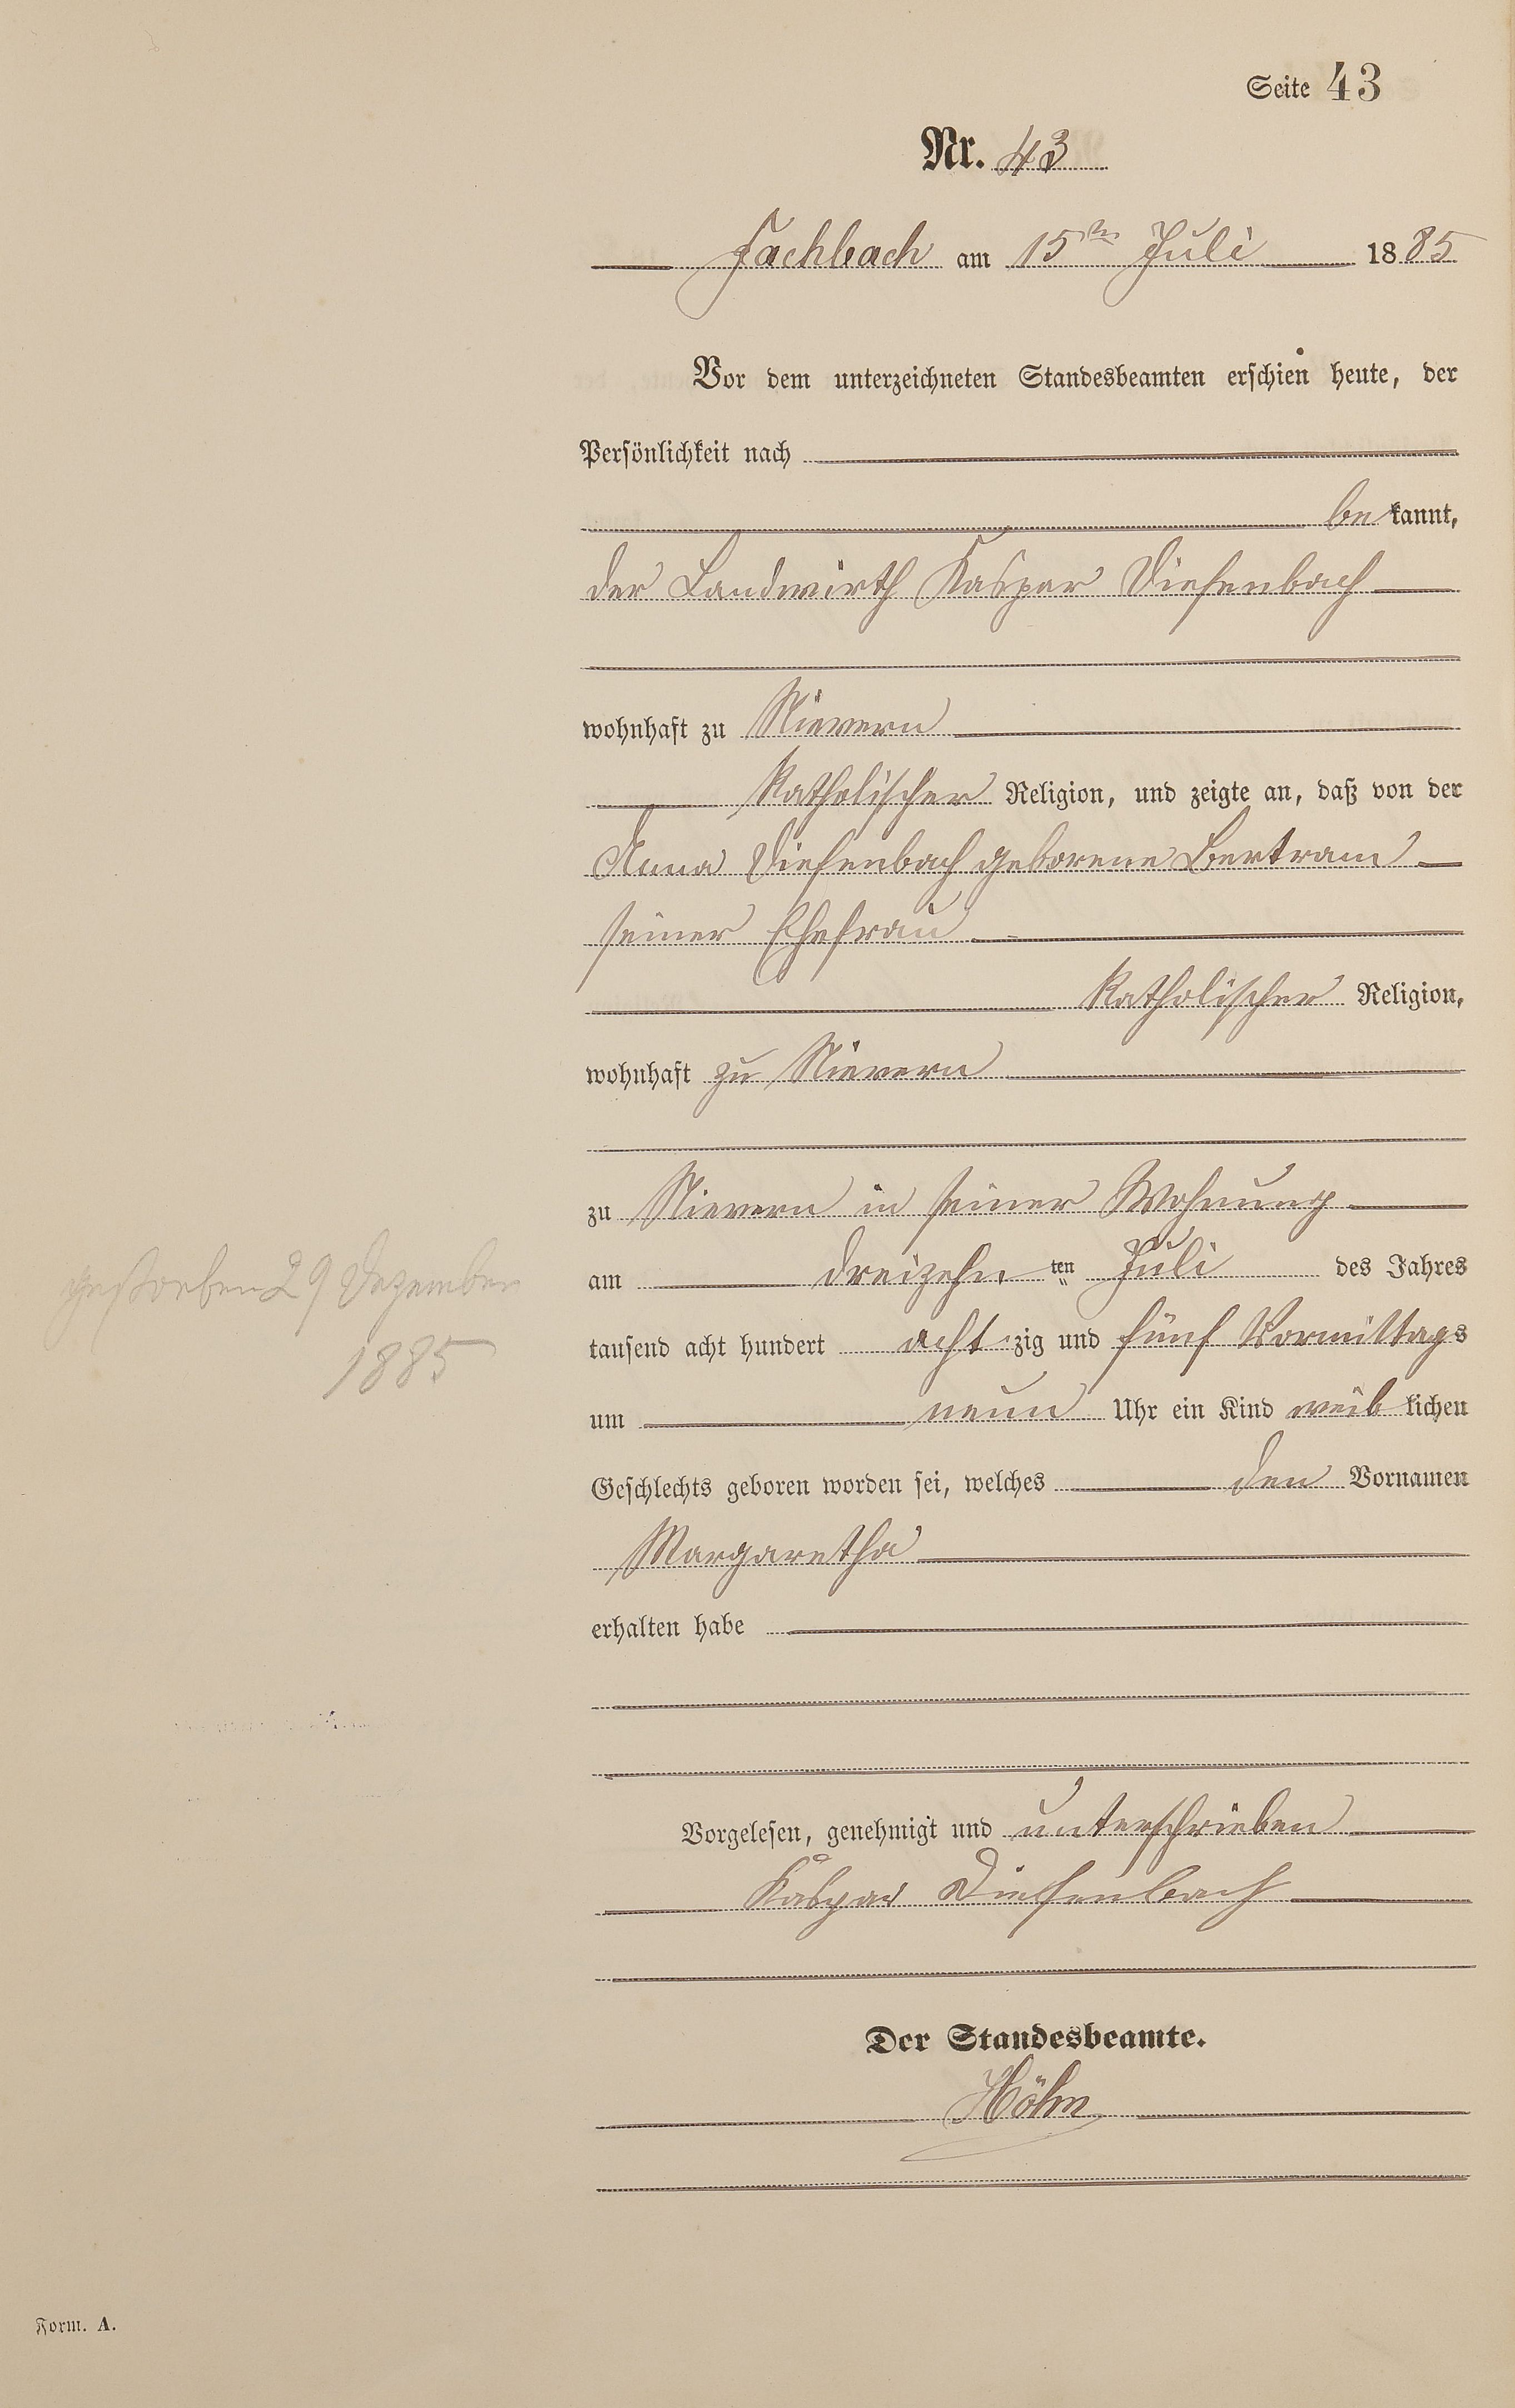 Seite 43
Nr. 43
Fachbach am 15ten Juli 1885
Vor dem unterzeichneten Standesbeamten erschien heute, der
Persönlichkeit nach
bekannt,
der Landwirth Kaspar Diefenbach
wohnhaft zu Nievern
katholischer Religion, und zeigte an, daß von der
Anna Diefenbach geborene Bertram
seiner Ehefrau
katholischer Religion,
wohnhaft zu Nievern
zu Nievern in seiner Wohnung
am dreizehnten Juli des Jahres
tausend acht hundert achtzig und fünf Vormittags
um neun Uhr ein Kind weiblichen
Geschlechts geboren worden sei, welches den Vornamen
Margaretha
erhalten habe
gestorben 29 Dezember
1885
Vorgelesen, genehmigt und unterschrieben
Kaspar Diefenbach
Der Standesbeamte.
Höhn
Form. A.